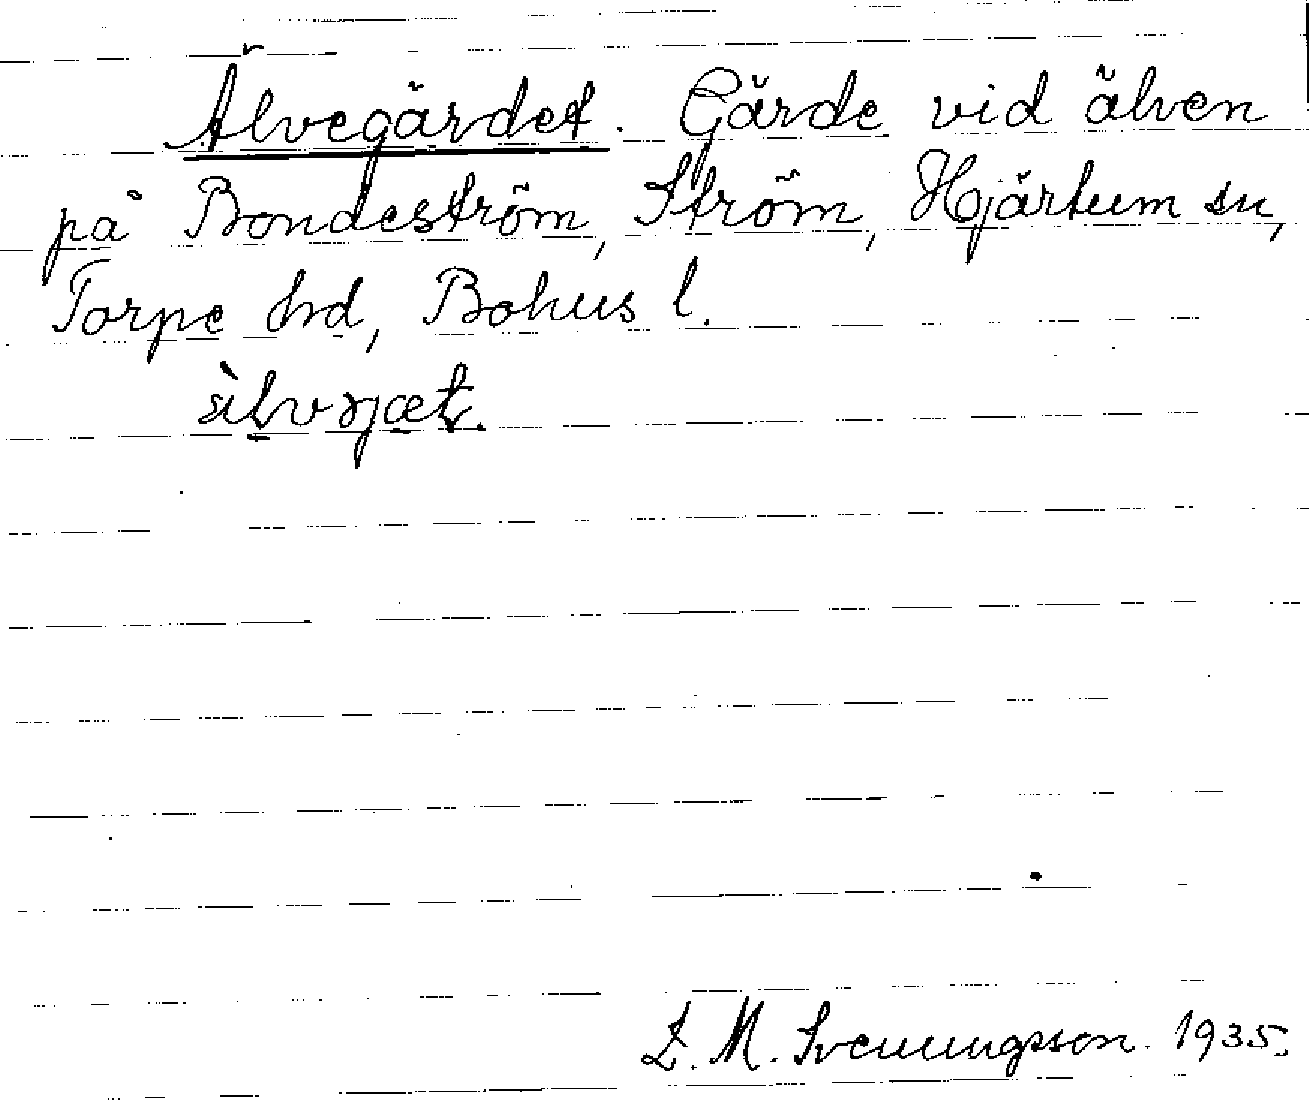 Älvegärdet. Gärde vid älven
på Bondeström, Ström, Hjärtum sn,
Torpe hd, Bohus l.
M. Svenningsson. 1935.